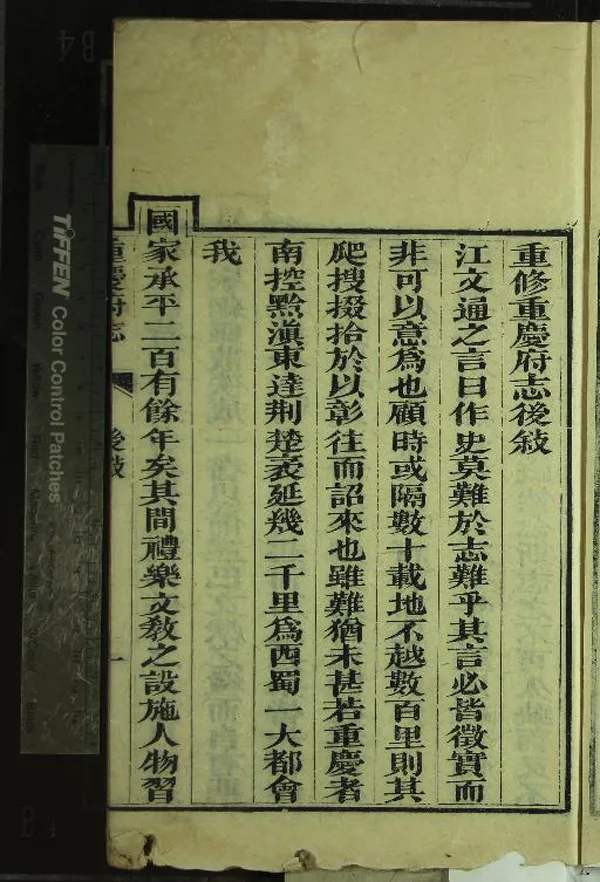 重修重慶府志後敍
江文通之言曰作史莫難於志難乎其言必皆徵實而
非可以意爲也顧時或隔數十載地不越數百里則其
爬搜掇拾於以彰往而詔來也雖難猶未甚若重慶者
南控黔滇東達荆楚袤延幾二千里爲西蜀一大都會
我
國家承平二百有餘年矣其間禮樂文教之設施人物習
重慶府志
後敍
一
TIFFEN Color Control Patches
B4